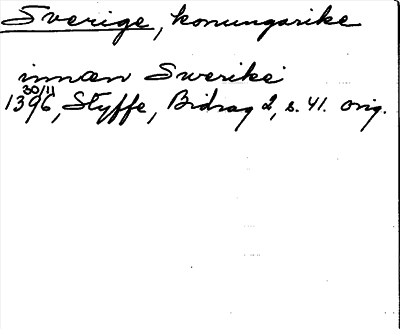 Sverige, konungarike
innan Swerike
30/11
1396, Styffe, Bidrag 2, s. 41. orig.